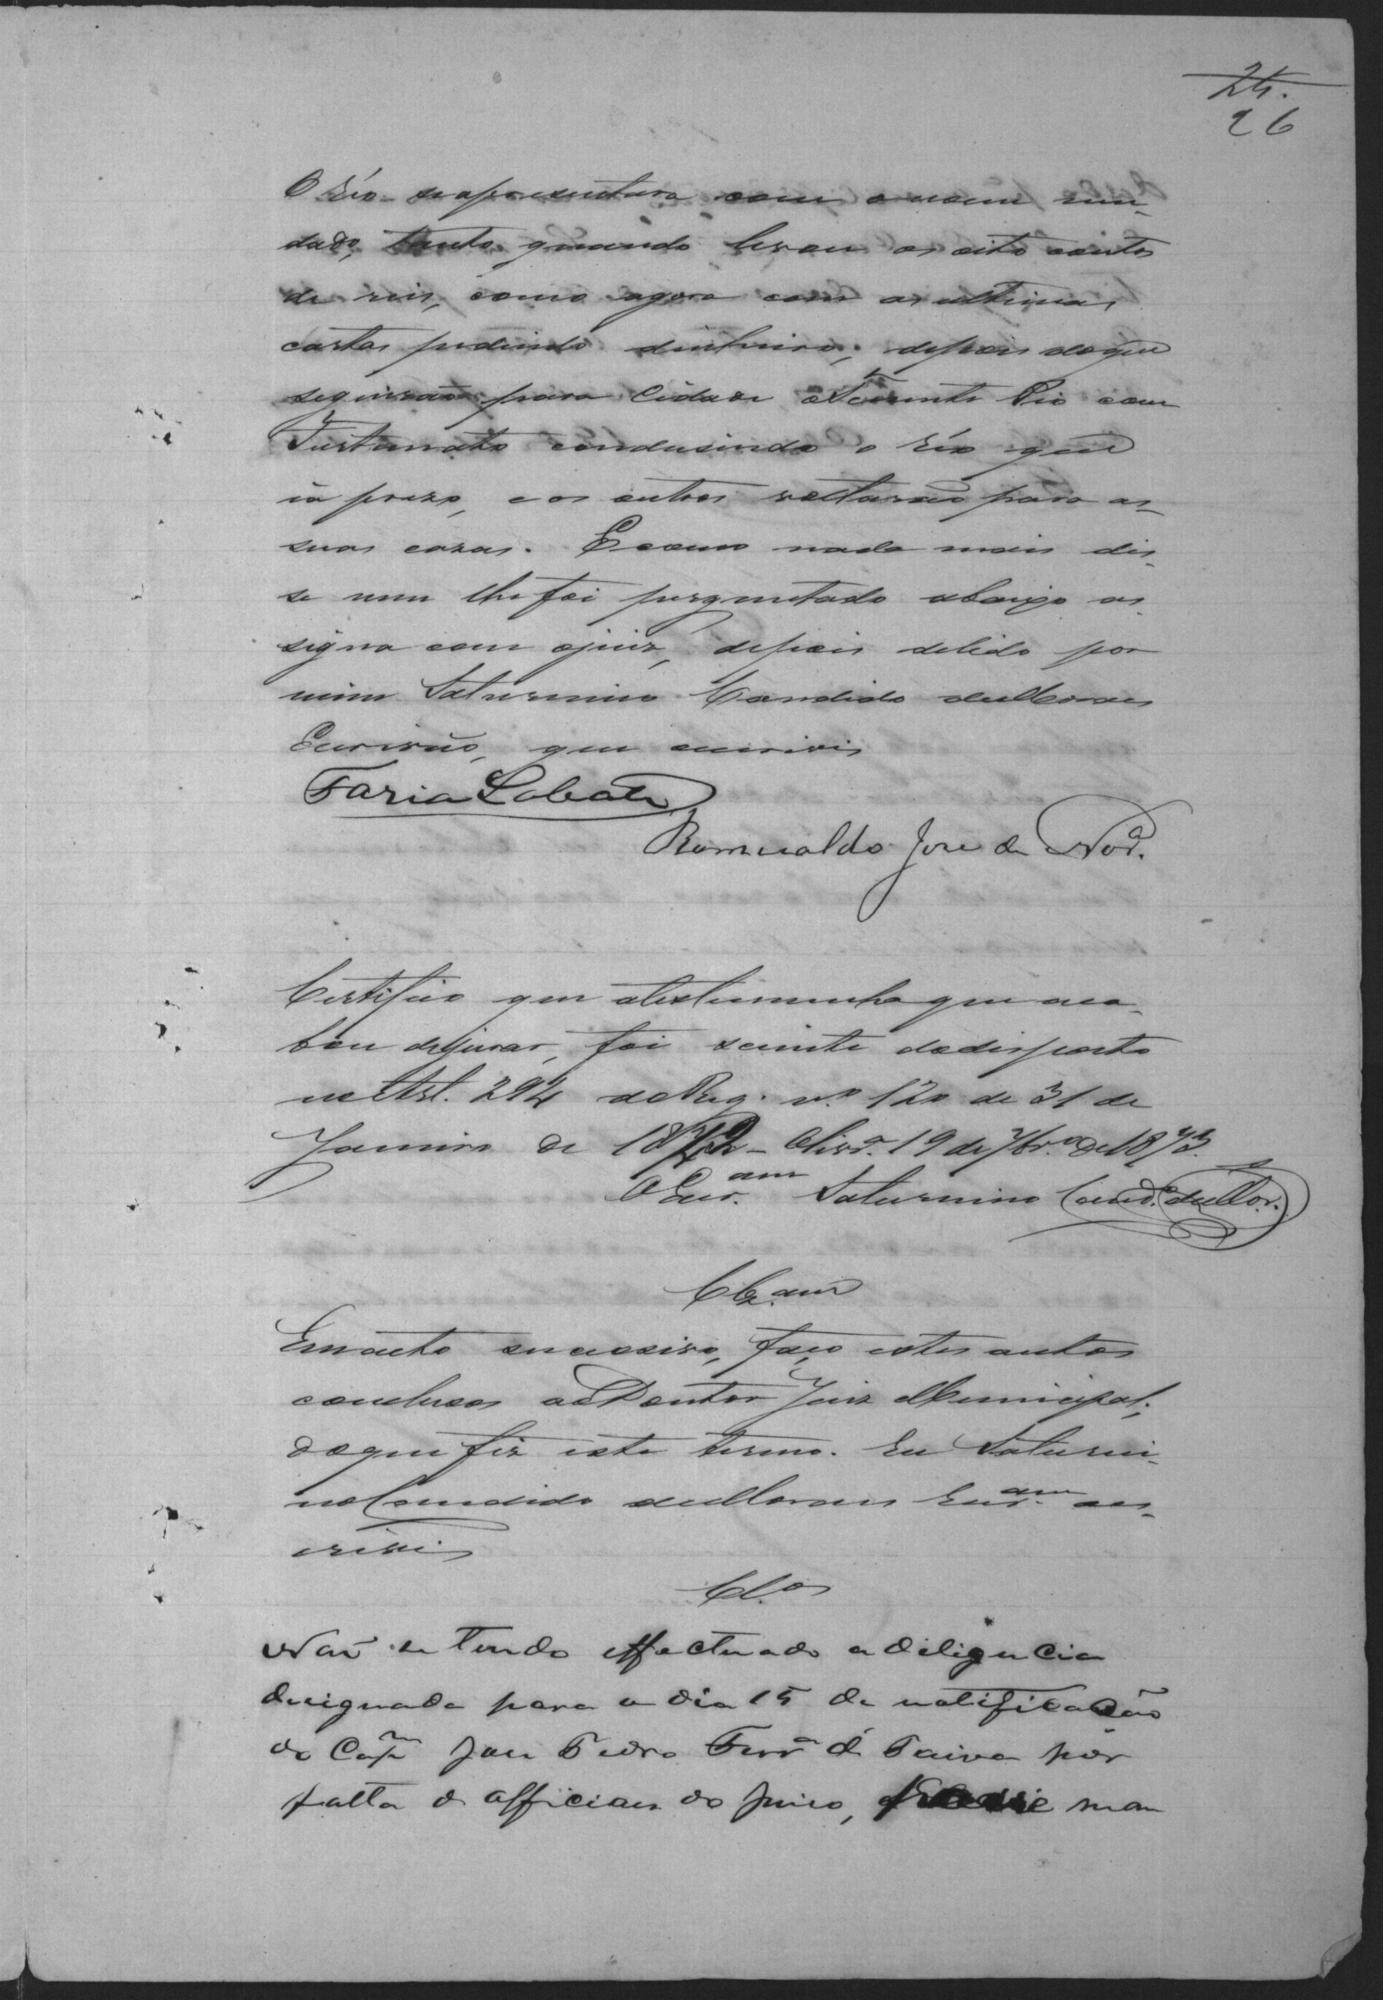 24.
26
O réo se apresentara com o nome mu-
dado, tanto quando levou os oito contos
de reis, como agora com as ultimas
cartas pedindo dinheiro; depois do que
seguirão para Cidade o Tenente Pio com
Furtunato condusindo o réo que
ia prezo, e os outros voltarão para as
suas cazas. E como nada mais dis-
se nem lhe foi perguntado abaixo as-
signa com o juiz, depois de lido por
mim Saturnino Candido de Moraes
Escrivão, que escrivi
Faria Lobato
Romualdo Jose de
Certifico que a testemunha que aca-
bou de jurar, foi sciente do disposto
no Art. 294 do Reg. n.º 120 de 31 de
Janeiro de 1842 - Olivr.ª 19 de 7br.º de 1873.
O Escr.am Saturnino Cand.º de Mor.
Clz.am
Em acto successivo, faço estes autos
conclusos ao Doutor Juiz Municipal;
do que fiz este termo. Eu Saturni-
no Candido de Moraes Escr.am es-
crivi
Cl.os
Não se tendo effectuado a diligencia
designada para o dia 15 de notificação
do Capm Jose Pedro Ferrª de Paiva por
falta de officiaes do Juiso, man